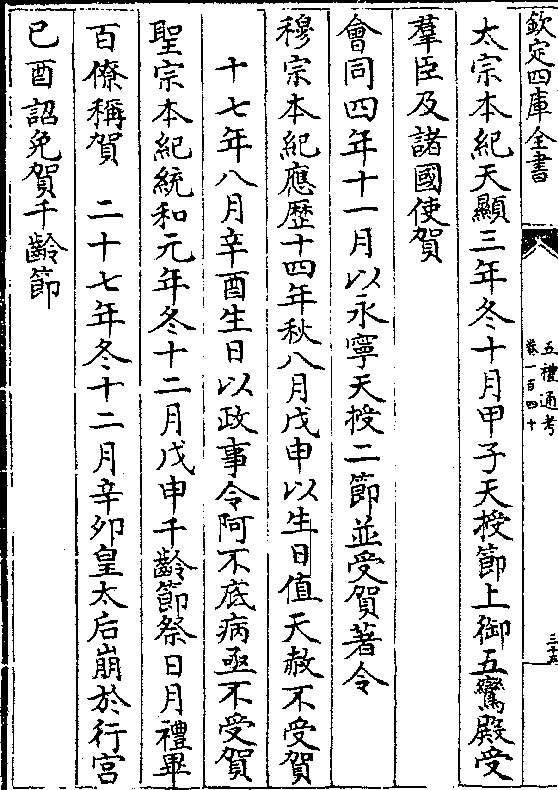 欽定四庫全書
五禮通考
卷一百四十
三十五
太宗本紀天顯三年冬十月甲子天授節上御五鸞殿受
羣臣及諸國使賀
會同四年十一月以永寧天授二節並受賀著令
穆宗本紀應歴十四年秋八月戊申以生日值天赦不受賀
十七年八月辛酉生日以政事令阿不底病亟不受賀
聖宗本紀統和元年冬十二月戊申千齡節祭日月禮畢
百僚稱賀　二十七年冬十二月辛夘皇太后崩於行宮
已酉詔免賀千齡節